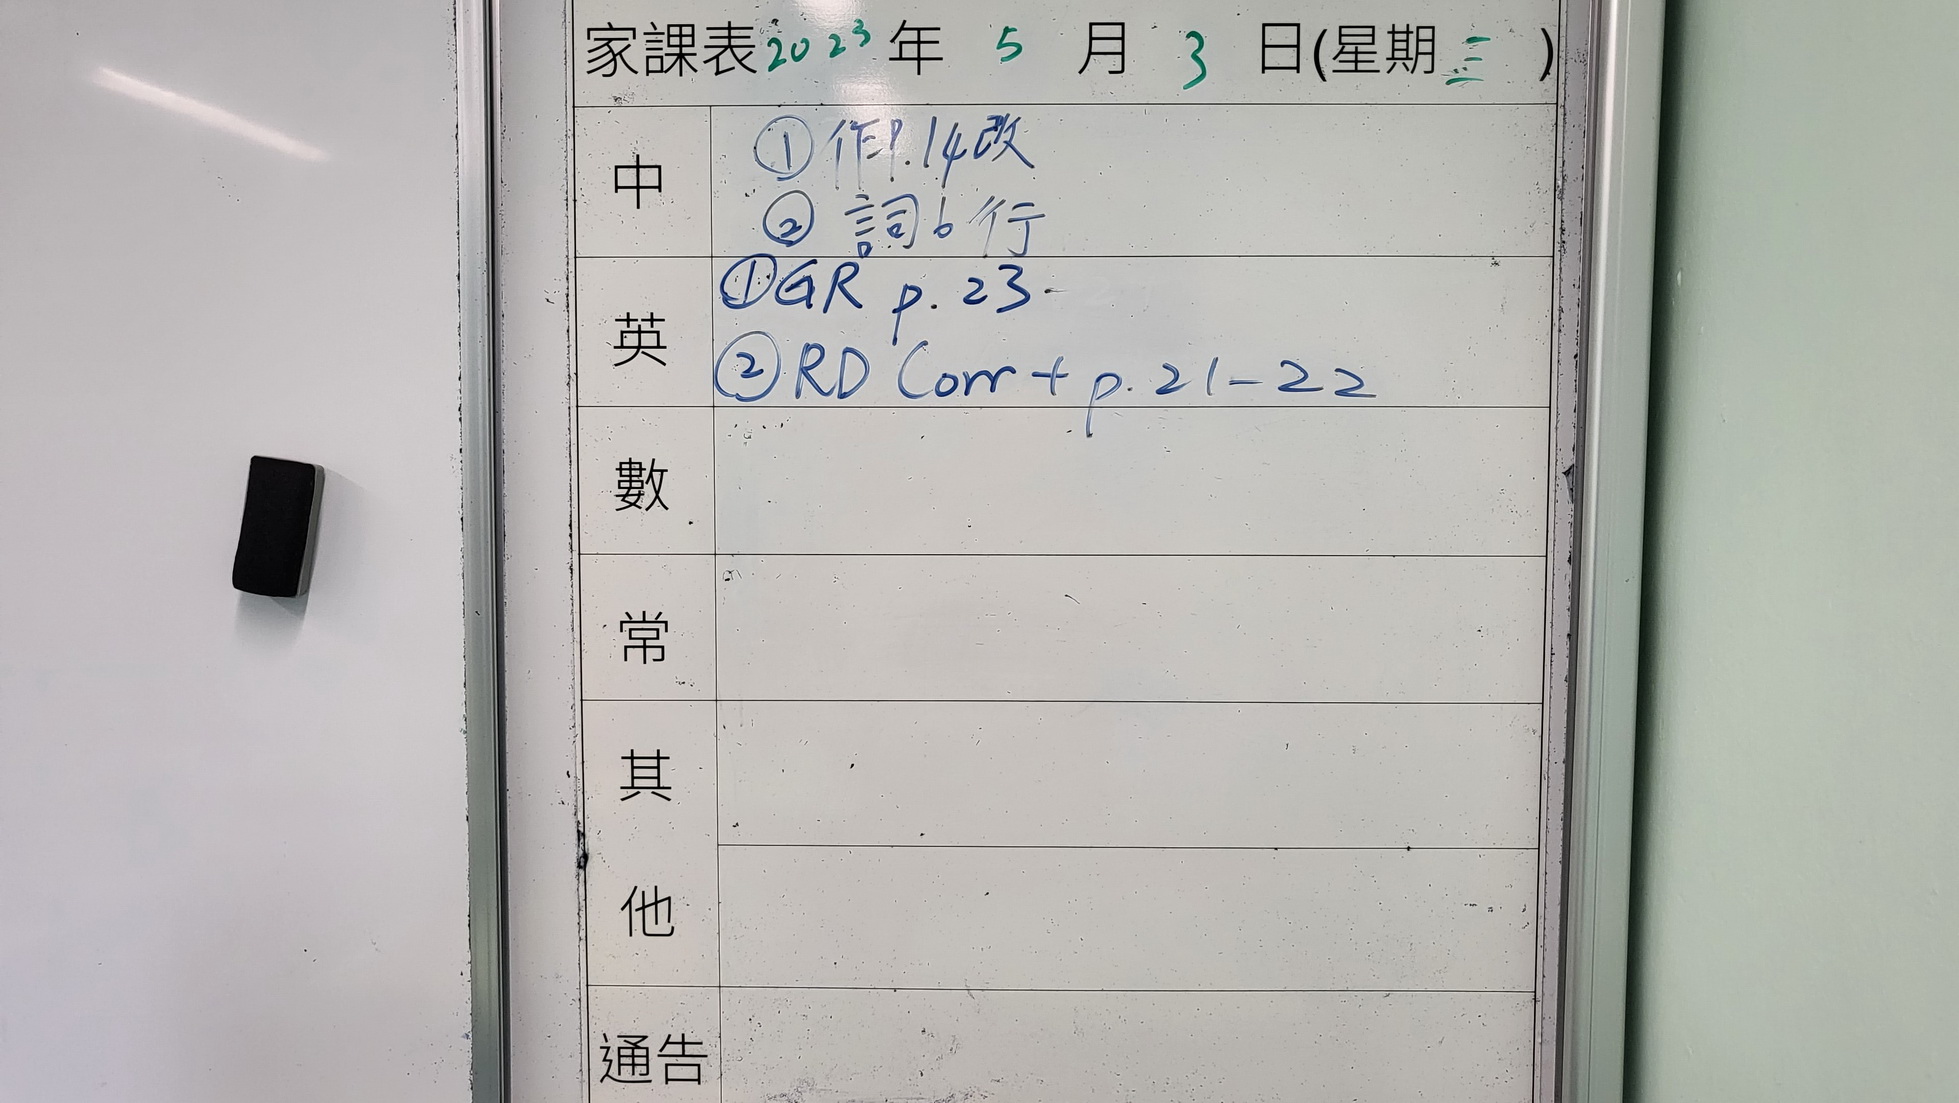 家課表2023年 5 月 3 日(星期三 )
中
①作P.14改
② 詞6行
英
①GR p.23
②RD Corr + p.21-22
數
常
其
他
通告